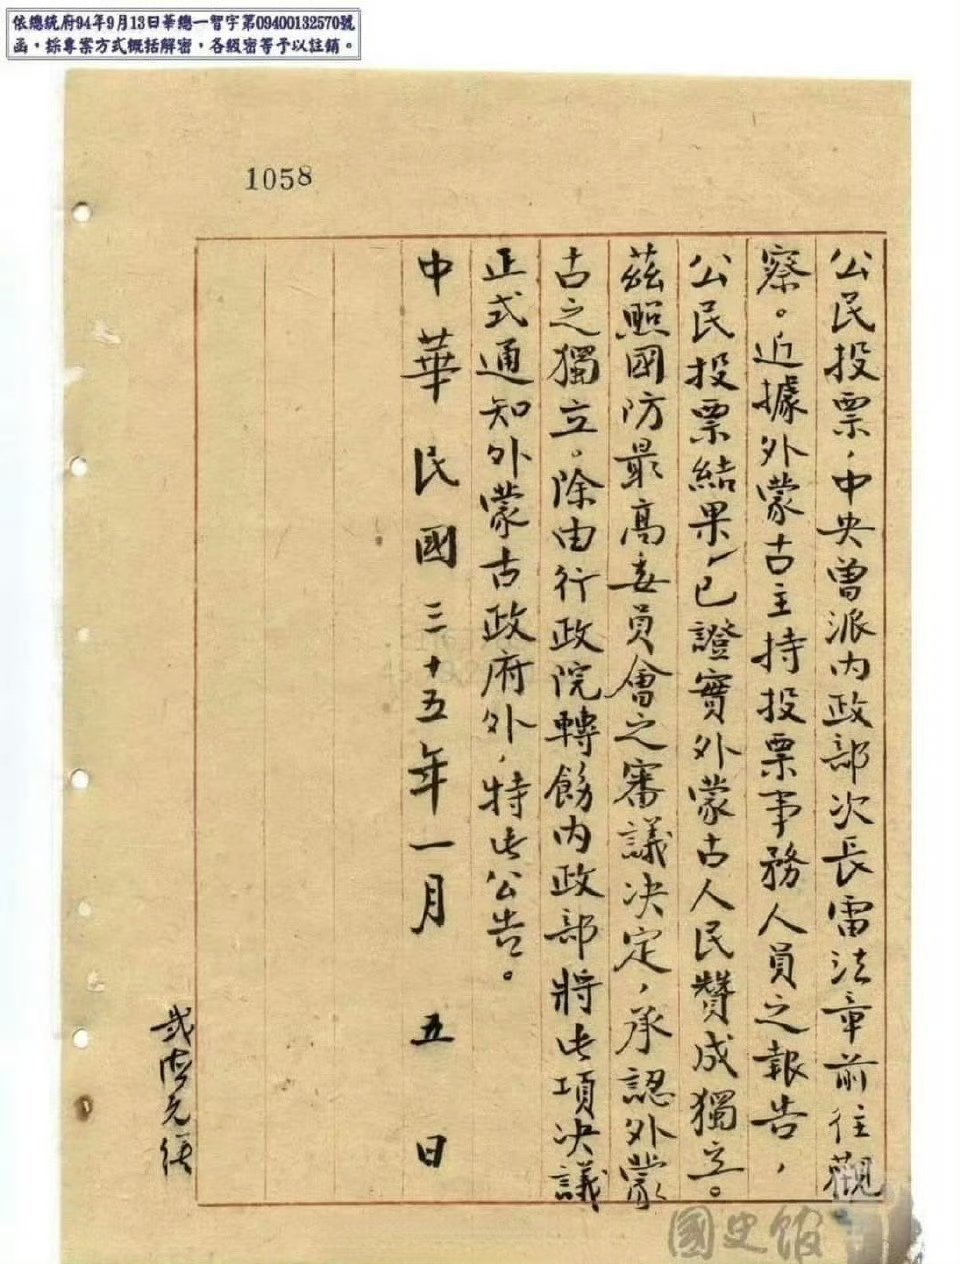 依總統府94年9月13日華總一智字第09400132570號
函，採專案方式概括解密，各級密等予以註銷。
1058
公民投票，中央曾派內政部次長雷法章前往觀
察。近據外蒙古主持投票事務人員之報告，
公民投票結果，已證實外蒙古人民贊成獨立。
茲照國防最高委員會之審議決定，承認外蒙
古之獨立。除由行政院轉飭內政部將此項決議
正式通知外蒙古政府外，特此公告。
中華民國三十五年一月五日
國史館